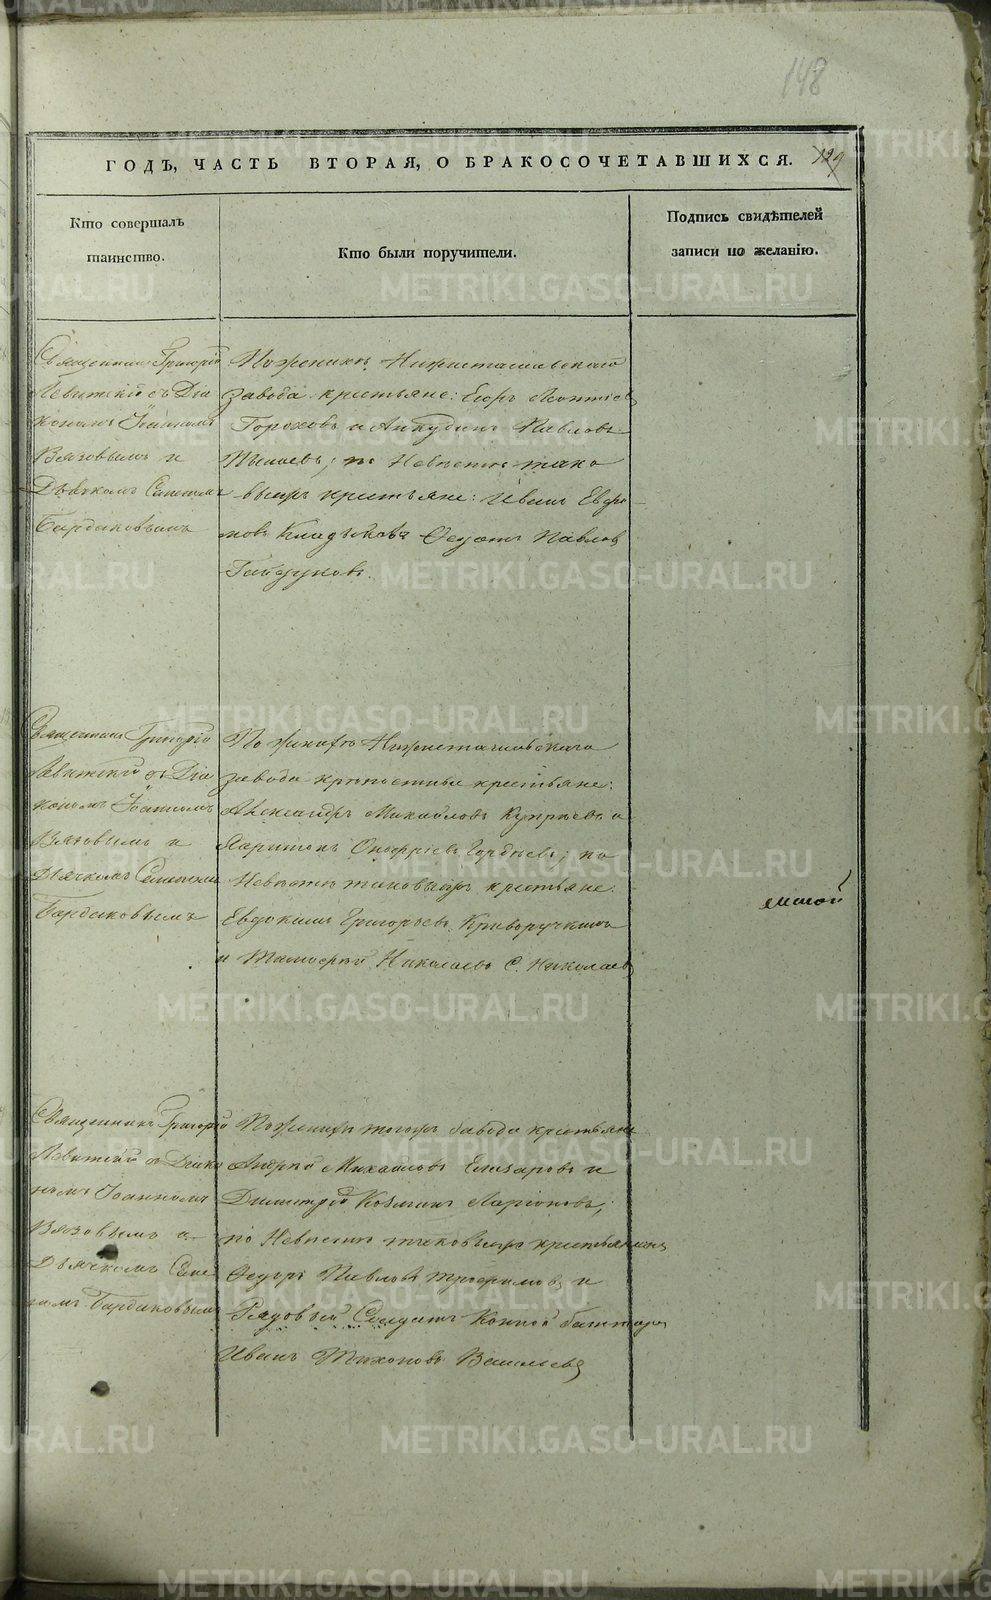 148
ГОДЪ, ЧАСТЬ ВТОРАЯ, О БРАКОСОЧЕТАВШИХСЯ.
129
Кто совершалъ
таинство.
Кто были поручители.
Подпись свидѣтелей
записи по желанію.
Священникъ Григорій
Левитскій съ Діа
кономъ Іоанномъ
Вязовымъ и
Дьячкомъ
Бардаковымъ
По женихѣ Нижнетагильскаго
завода крестьяне: Егоръ Леонтьев
Гороховъ и Анкудинъ Павловъ
по Невѣстѣ тако
выхъ крестьяне: Иванъ Евфи
мовъ Павлов
Гайдуковъ.
Священникъ Григорій
Левитскій съ Діа
кономъ Іоанномъ
Вязовымъ и
Дьячкомъ
Бардаковымъ
По женихѣ Нижнетагильскаго
завода крѣпостные крестьяне:
Александръ Михайловъ и
Харитонъ Онофріевъ Горбуновъ; по
Невѣстѣ таковыхъ крестьяне:
Евдокимъ Григорьевъ Криворучкинъ
и Тимофей Николаевъ С. Николаев
ямской
Священникъ Григорій
Левитскій съ Діако
номъ Іоанномъ
Вязовымъ и
Дьячкомъ
Бардаковымъ
По женихѣ тогожъ завода крестьяне
Андрей Михайловъ Елизаровъ и
Димитрій Козминъ Ларіоновъ;
по Невѣстѣ таковыхъ крестьянинъ
Федоръ Павловъ Трофимовъ и
Рядовый Солдатъ Конной батареи
Иванъ Тихоновъ Васильевъ
METRIKI.GASO-URAL.RU